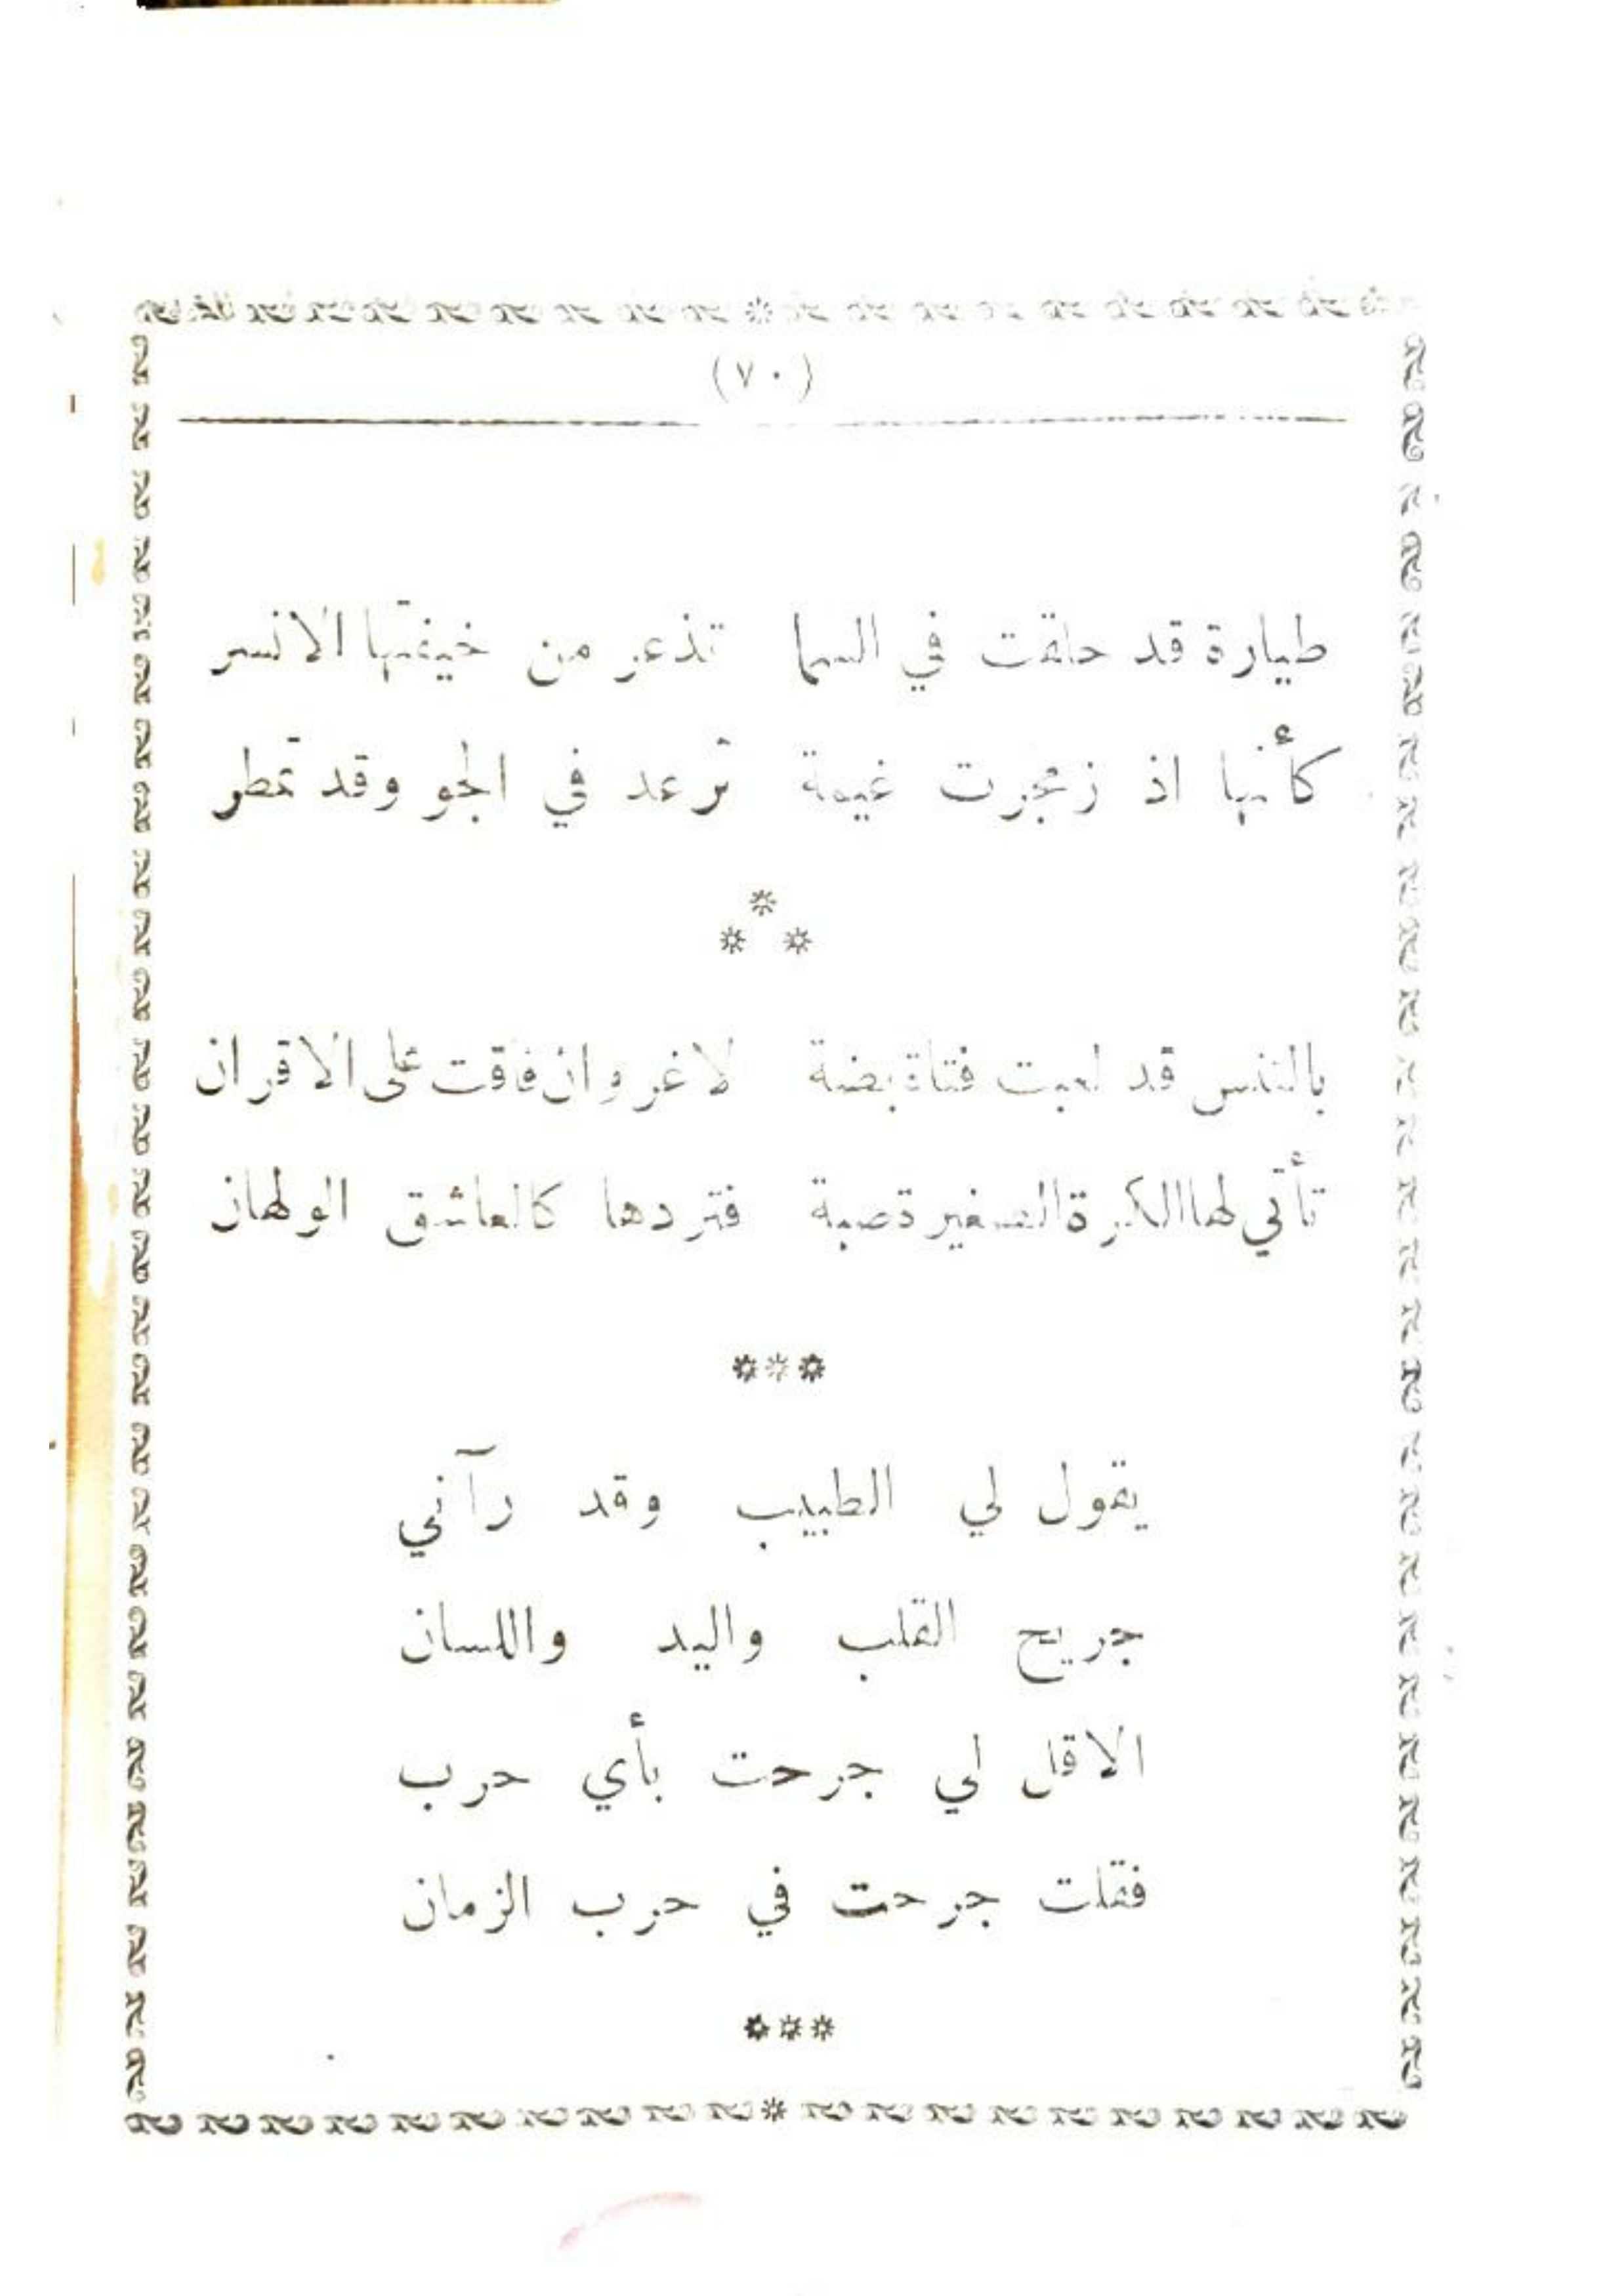 (٧٠)
طيارة قد حلقت في السما تذعر من خيفتها الانسر
كأنها اذ زمجرت غيمة ترعد في الجو وقد تمطر
*
* *
بالتنس قد لعبت فتاة بضة لاغرو ان فاقت على الاقران
تأتي لها الكرة الصغيرة صبة فتردها كالعاشق الولهان
***
يقول لي الطبيب وقد رآني
جريح القلب واليد واللسان
الاقل لي جرحت بأي حرب
فقلت جرحت في حرب الزمان
***